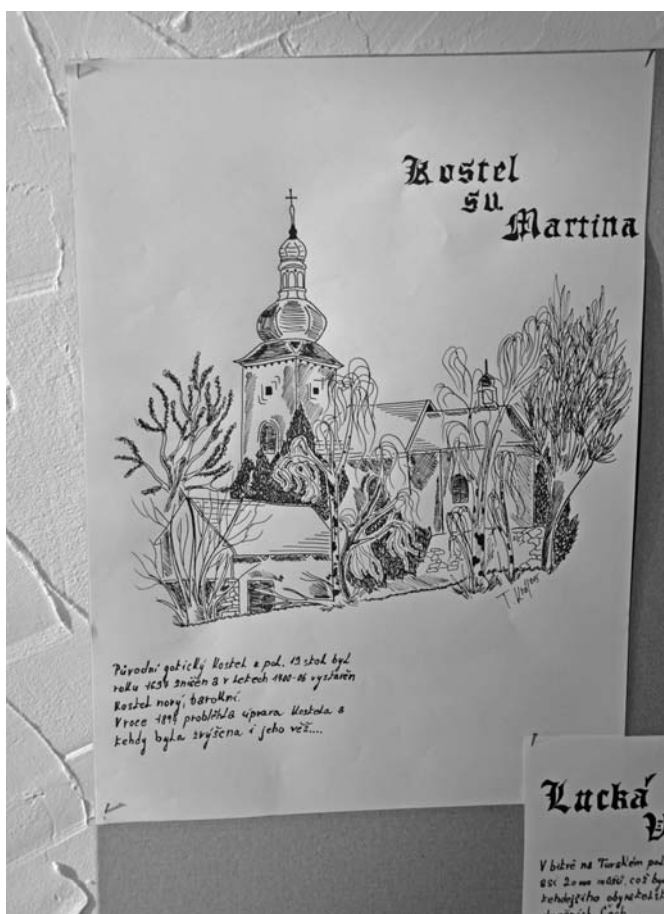 Kostel
sv.
Martina
Původní gotický kostel z pol. 13 stol. byl
roku 1697 zničen a v letech 1700-06 vystavěn
kostel nový, barokní.
V roce 1894 proběhla úprava kostela a
tehdy byla zvýšena i jeho věž....
Lucká
V bitvě na Turském
asi 2000 mužů, což
tehdejšího